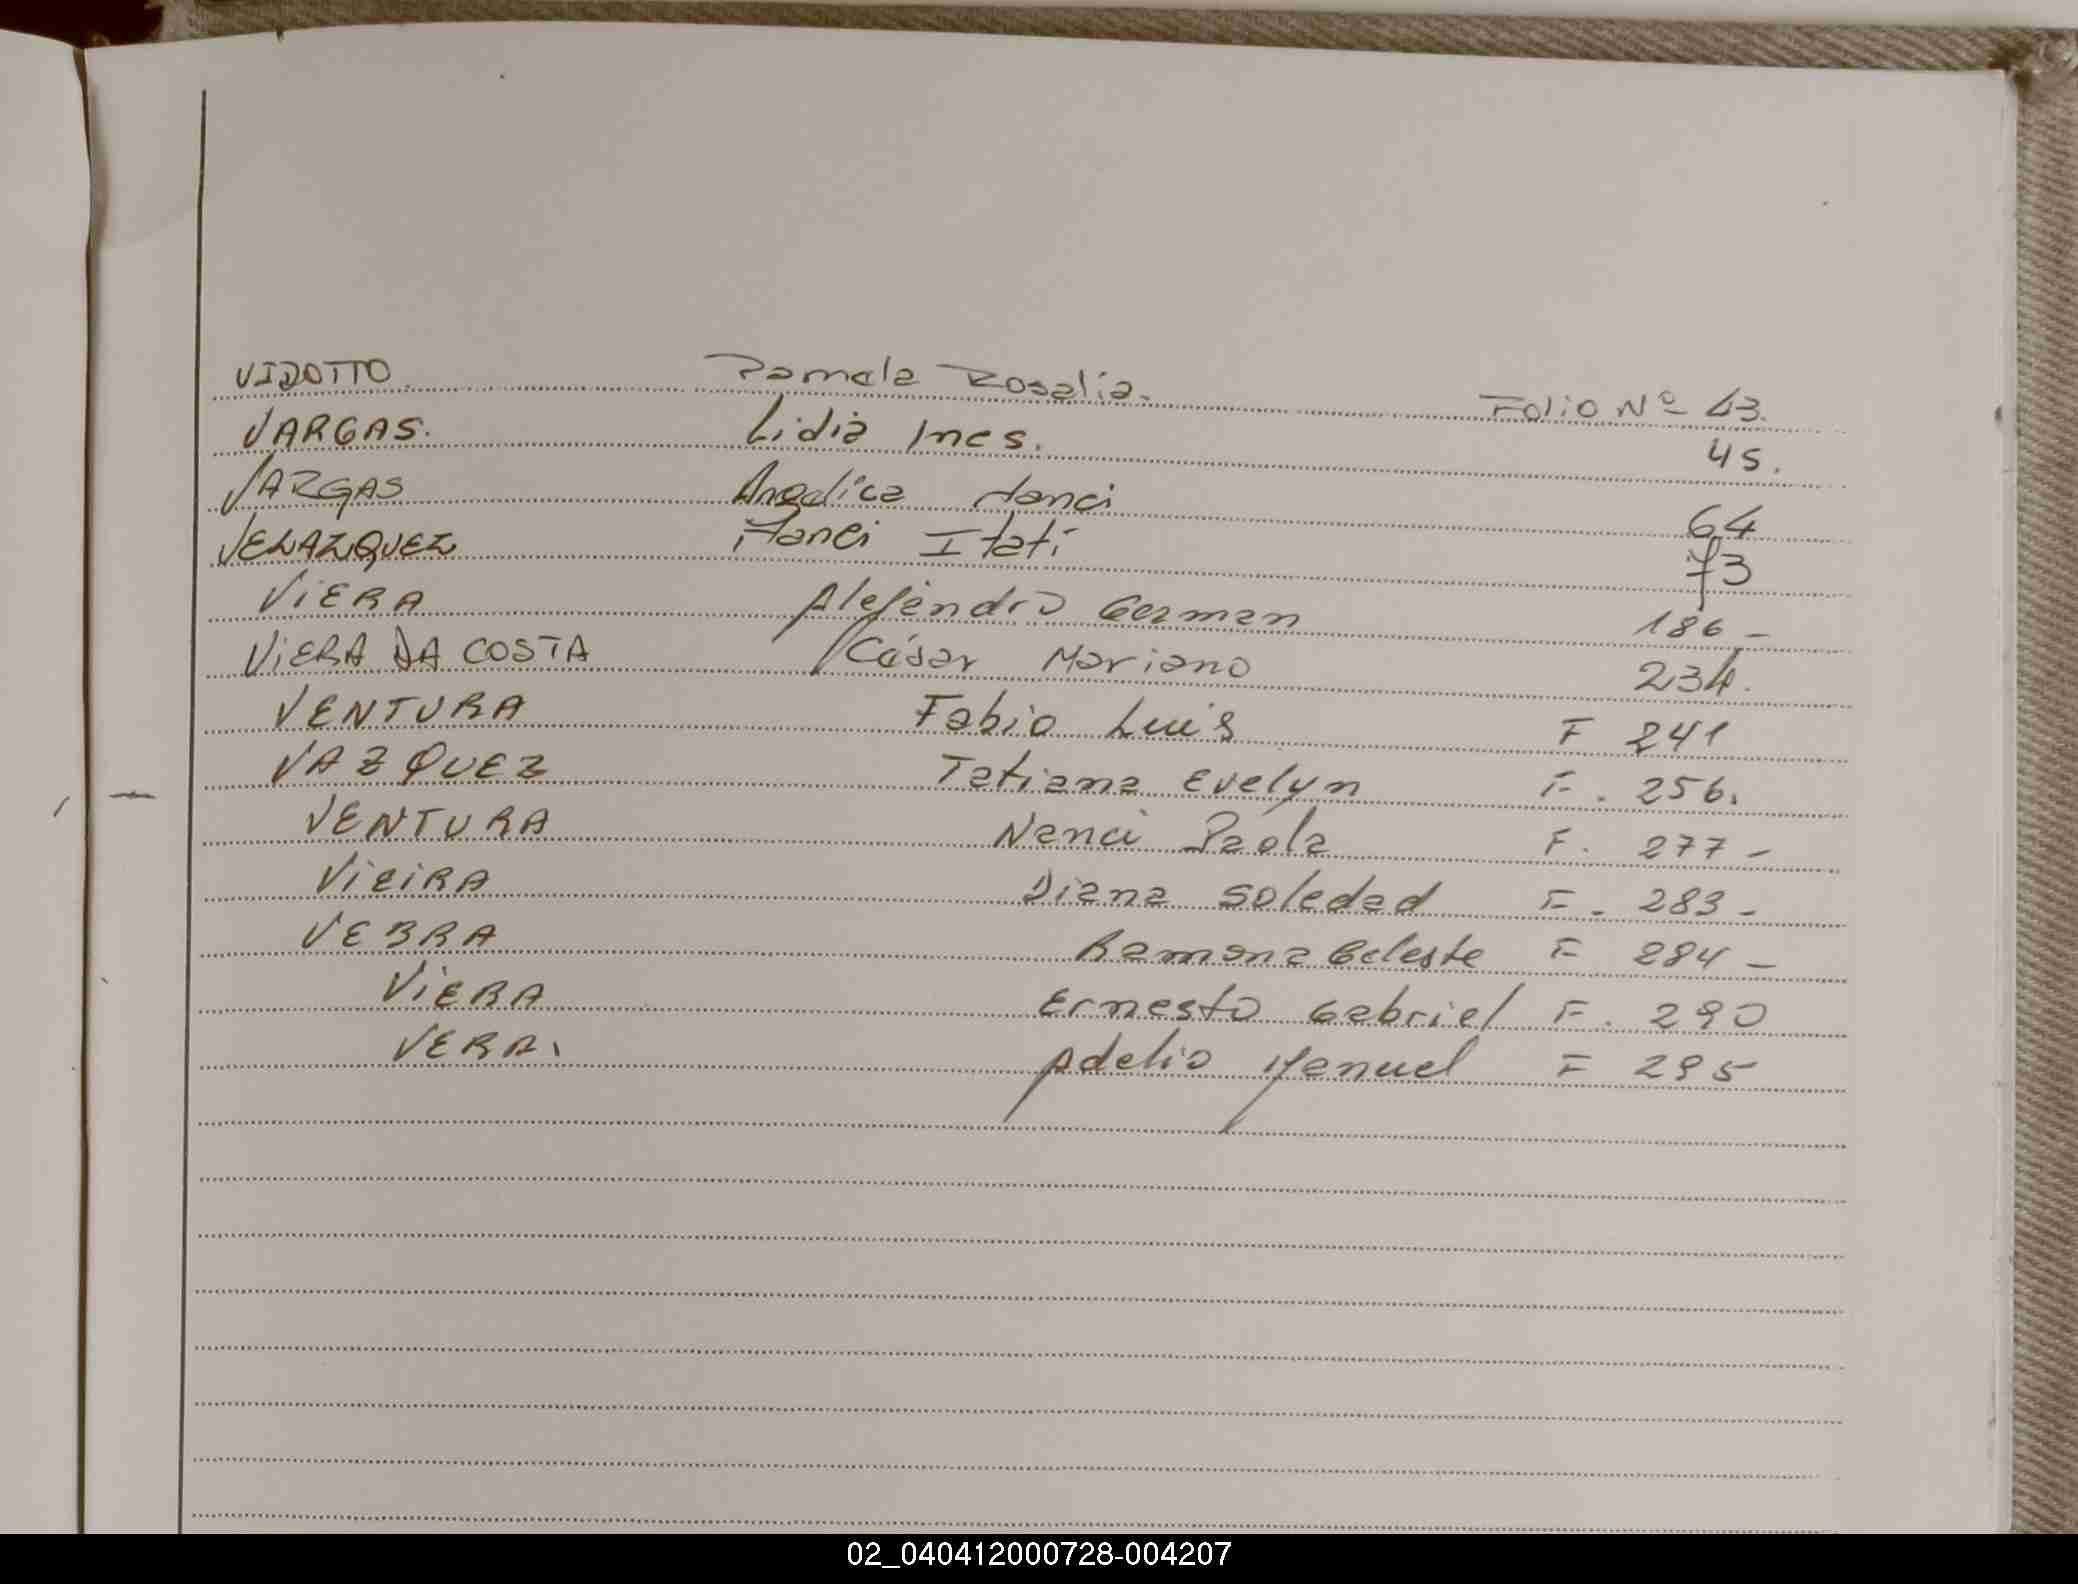 VIDOTTO Pamela Rosalia. Folio Nº 43.
VARGAS. Lidia Ines. 45.
VARGAS Angelica Nanci 64
VELAZQUEZ Nanci Itati 73
VIERA Alejandro German 186 -
VIERA DA COSTA César Mariano 234.
VENTURA Fabio Luis F 241
VAZQUEZ Tatiana Evelyn F. 256.
VENTURA Nanci Paola F. 277 -
VIEIRA Diana Soledad F. 283 -
Ramona Celeste F 284 -
VIERA Ernesto Gabriel F. 290
VERA. Adelio Manuel F 295
02_040412000728-004207